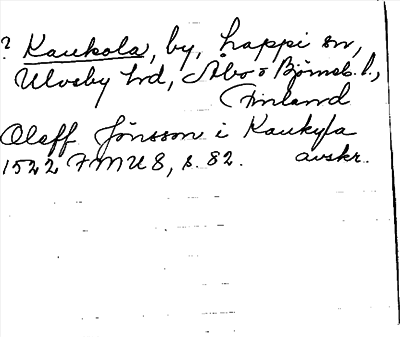 ? Kaukola, by, Lappi sn,
Ulvsby hd, Åbo o Björneb. l.,
Finland
Oleff Jönsson i Kaukyla
1522 FMU 8, s. 82. avskr.